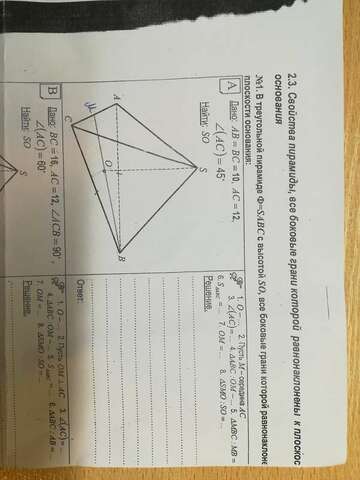 2.3. Свойства пирамиды, все боковые грани которой равнонаклонены к плоскос
основания
№1. В треугольной пирамиде Ф=SABC с высотой SO, все боковые грани которой равнонаклоне
плоскости основания:
A Дано: AB = BC = 10, AC = 12,
∠(AC) = 45°.
Найти: SO
S
A
O
B
C
M
1. O – ... 2. Пусть M – середина AC
3. ∠(AC) = ... 4. ΔABC : OM – ... 5. ΔMBC : MB =
6. S = ... 7. OM = ... 8. ΔSMO : SO = ...
Решение.
Ответ:
B Дано: BC = 16, AC = 12, ∠ACB = 90°,
∠(AC) = 60°.
Найти: SO
S
1. O – ... 2. Пусть OM ⊥ AC 3. ∠(AC) = ...
4. ΔABC : OM – ... 5. S = ... 6. ΔABC : AB = ...
7. OM = ... 8. ΔSMO : SO = ...
Решение.